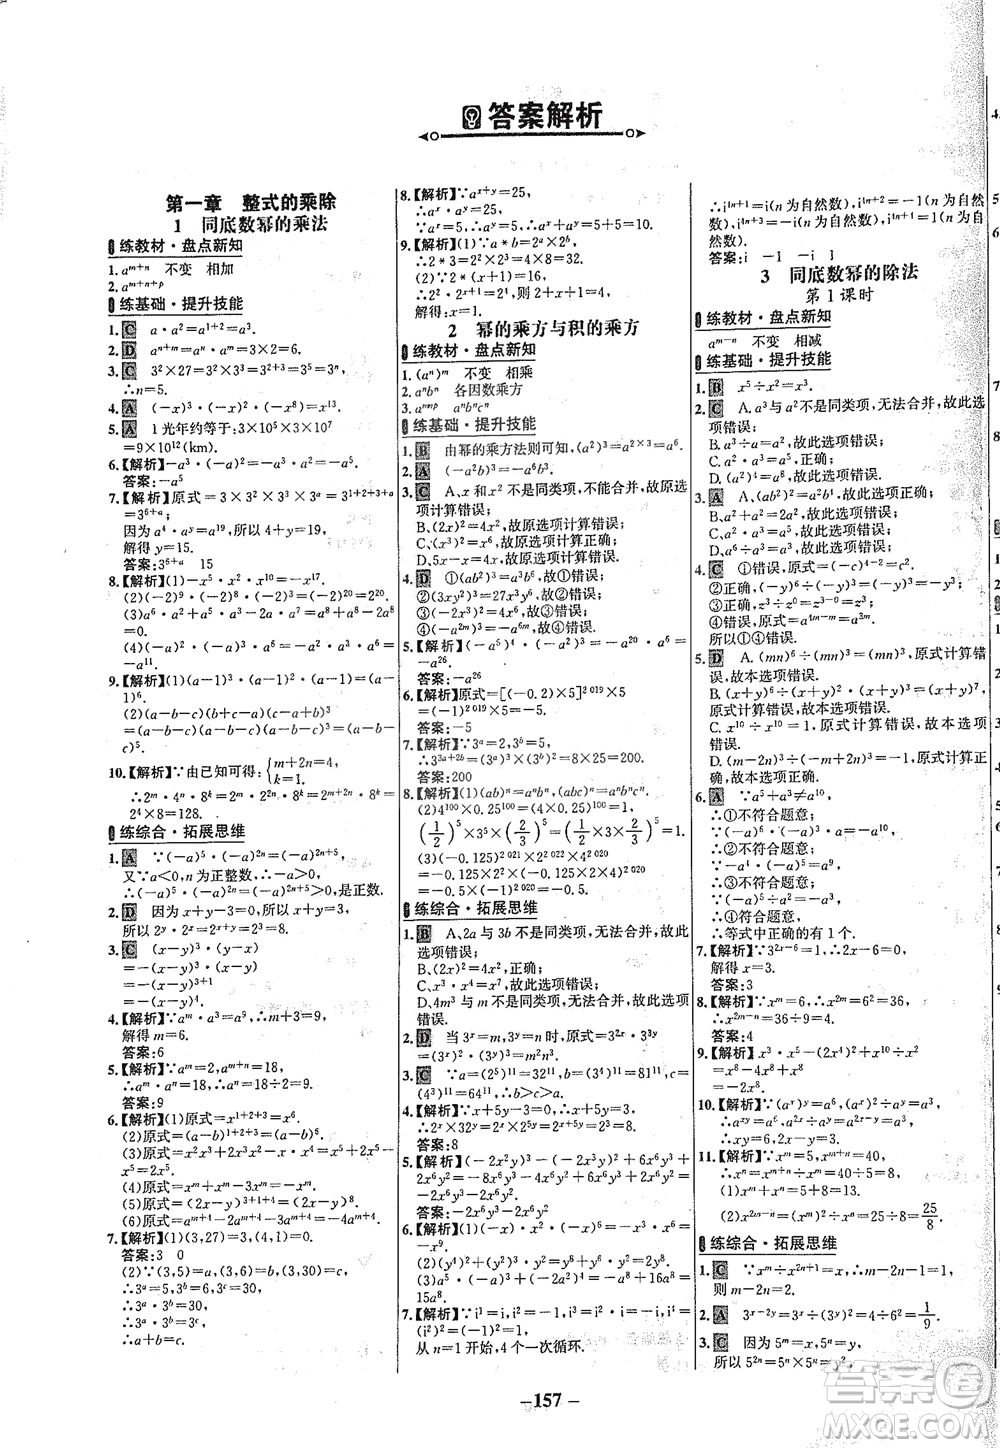 答案解析
第一章 整式的乘除
1 同底数幂的乘法
练教材·盘点新知
1. aᵐ⁺ⁿ 不变 相加
2. aᵐ⁺ⁿ⁺ᵖ
练基础·提升技能
1. C a·a²=a¹⁺²=a³.
2. D aⁿ⁺ᵐ=aⁿ·aᵐ=3×2=6.
3. C 3²×27=3²×3³=3²⁺³=3⁵,
∴n=5.
4. A (-x)³·(-x)²·(-x⁸)=x¹³.
5. A 1光年约等于:3×10⁵×3×10⁷
=9×10¹²(km).
6.【解析】-a³·(-a)²=-a³·a²=-a⁵.
答案:-a⁵
7.【解析】原式=3×3²×3³×3ᵃ=3¹⁺²⁺³⁺ᵃ
=3⁶⁺ᵃ;
因为a⁴·aʸ=a¹⁹,所以4+y=19,
解得y=15.
答案:3⁶⁺ᵃ 15
8.【解析】(1)-x⁵·x²·x¹⁰=-x¹⁷.
(2)(-2)⁹·(-2)⁸·(-2)³=(-2)²⁰=2²⁰.
(3)a⁶·a²+a⁵·a³-2a·a⁷=a⁸+a⁸-2a⁸
=0.
(4)(-a)²·(-a)³·a⁶=a²·(-a³)·a⁶=
-a¹¹.
9.【解析】(1)(a-1)³·(a-1)⁴=(a-1)³⁺⁴=
(a-1)⁷.
(2)(a-b-c)(b+c-a)(c-a+b)³=
(a-b-c)(a-b-c)(a-b-c)³=
(a-b-c)⁵.
10.【解析】∵由已知可得:{m+2n=4,
k=1.
∴2ᵐ·4ⁿ·8ᵏ=2ᵐ·2²ⁿ·8ᵏ=2ᵐ⁺²ⁿ·8ᵏ=
2⁴×8=128.
练综合·拓展思维
1. A ∵(-a)⁵·(-a)²ⁿ=(-a)²ⁿ⁺⁵,
又∵a<0,n为正整数,
∴(-a)⁵·(-a)²ⁿ>0,是正数.
2. D 因为x+y-3=0,所以x+y=3,
所以2ʸ·2ˣ=2ˣ⁺ʸ=2³=8.
3. C (x-y)³·(y-x)
=-(x-y)³·(x-y)
=-(x-y)³⁺¹
=-(x-y)⁴.
4.【解析】∵aᵐ·a³=a⁹,∴m+3=9,
解得m=6.
答案:6
5.【解析】∵aᵐ=2,aᵐ⁺ⁿ=18,
∴aᵐ·aⁿ=aᵐ⁺ⁿ=18,∴aⁿ=9.
答案:9
6.【解析】(1)原式=x¹⁺²⁺³=x⁶.
(2)原式=(a-b)¹⁺²⁺³=(a-b)⁶.
(3)原式=x³·x²+2x³·x²-x·x⁴=
2x⁵.
(4)原式=xᵐ+ⁿ-3xᵐ⁺ⁿ=-2xᵐ⁺ⁿ.
(5)原式=(2x-y)³⁺¹⁺⁴=(2x-y)⁸.
(6)原式=aᵐ⁺⁴-2aᵐ⁺⁴-3aᵐ⁺⁴=-4aᵐ⁺⁴.
7.【解析】(1)(3,27)=3,(5,1)=0.
答案:3 0
(2)∵(3,5)=a,(3,6)=b,(3,30)=c,
∴3ᵃ=5,3ᵇ=6,3ᶜ=30,
∴3ᵃ·3ᵇ=5×6=30,
∴3ᵃ·3ᵇ=3ᶜ,
∴a+b=c.
8.【解析】∵aˣ⁺ʸ=25,
∴aˣ·aʸ=25.
∵aˣ=5,∴aʸ=5,∴aˣ+aʸ=5+5=10.
9.【解析】(1)∵a*b=2ᵃ×2ᵇ,
∴2*3=2²×2³=4×8=32.
(2)∵2*(x+1)=16,
∴2²·2ˣ⁺¹=2⁴,∴2+x+1=4,
解得:x=1.
2 幂的乘方与积的乘方
练教材·盘点新知
1. (aⁿ)ᵐ 不变 相乘
2. aⁿbⁿ 各因数乘方
3. aᵐⁿᵖ aⁿbⁿcⁿ
练基础·提升技能
1. B 由幂的乘方法则可知,(a²)³=a²ˣ³=a⁶.
2. A (-a²b³)²=a⁴b⁶.
3. C A、x和x²不是同类项,不能合并,故原
选项计算错误;
B、(2x)²=4x²,故原选项计算错误;
C、(x³)²=x⁶,故原选项计算正确;
D、5x-x=4x,故原选项计算错误.
4. D ①(ab²)³=a³b⁶,故①错误;
②(3xy²)³=27x³y⁶,故②错误;
③(-2x³)²=4x⁶,故③错误;
④(-a²ᵐ)³=-a⁶ᵐ,故④错误.
5.【解析】(-a⁵)⁴·(-a²)³=-a²⁰·a⁶=
-a²⁶.
答案:-a²⁶
6.【解析】原式=[(-0.2)×5]²⁰¹⁹×5
=(-1)²⁰¹⁹×5=-5.
答案:-5
7.【解析】∵3ᵃ=2,3ᵇ=5,
∴3³ᵃ⁺²ᵇ=(3ᵃ)³×(3ᵇ)²=8×25=200.
答案:200
8.【解析】(1)(ab)ⁿ=aⁿbⁿ,(abc)ⁿ=aⁿbⁿcⁿ.
(2)4¹⁰⁰×0.25¹⁰⁰=(4×0.25)¹⁰⁰=1,
(1/2)⁵×3⁵×(2/3)⁵=(1/2×3×2/3)⁵=1.
(3)(-0.125)²⁰²¹×2²⁰²¹×4²⁰²⁰
=-0.125×2×(-0.125×2×4)²⁰²⁰
=-0.5×(-1)²⁰²⁰=-0.5.
练综合·拓展思维
1. B A、2a与3b不是同类项,无法合并,故此
选项错误;
B、(2x)²=4x²,故此选项正确;
C、x³·x²=x⁵,故此选项错误;
D、4m³与m不是同类项,无法合并,故此选项
错误.
2. D 当3ˣ=m,3ʸ=n时,原式=3²ˣ·3³ʸ=
(3ˣ)²·(3ʸ)³=m²n³.
3. C ∵a=(2⁵)¹¹=32¹¹,b=(3⁴)¹¹=81¹¹,c=
(4³)¹¹=64¹¹,∴b>c>a.
4.【解析】∵x+5y=3,∴x=3-5y,
∴2ˣ×32ʸ=2ˣ×2⁵ʸ=2ˣ⁺⁵ʸ=2³=8.
答案:8
5.【解析】(-2x²y)³+6x⁶y³=-8x⁶y³+6x⁶y³=
-2x⁶y³.
答案:-2x⁶y³
6.【解析】(1)(-x)·x²·(-x)⁶=-x·x²·x⁶=
-x⁹.
(2)(y⁴)²+(y²)³·y²=y⁸+y⁶·y²=y⁸+y⁸=2y⁸.
(3)a⁵·(-a)³+(-2a²)⁴=-a⁸+16a⁸=
15a⁸.
7.【解析】∵i¹=i,i²=-1,i³=i²·i=-i,i⁴=
(i²)²=(-1)²=1,
从n=1开始,4个一次循环.
∴i⁴ⁿ⁺¹=i(n为自然数),i⁴ⁿ⁺²=-1(n为自然
数),i⁴ⁿ⁺³=-i(n为自然数),i⁴ⁿ⁺⁴=1(n为自
然数).
答案:i -1 -i 1
3 同底数幂的除法
第1课时
练教材·盘点新知
aᵐ⁻ⁿ 不变 相减
练基础·提升技能
1. B x⁵÷x²=x³.
2. C A.a³与a²不是同类项,不能合并,此选
项错误;
B.a³÷a=a²,此选项错误;
C.a²·a³=a⁵,此选项正确;
D.(a²)⁴=a⁸,此选项错误.
3. A A、(ab²)²=a²b⁴,故选项正确;
B、a²+a²=2a²,故选项错误;
C、a²·a³=a⁵,故选项错误;
D、a⁶÷a³=a³,故选项错误.
4. C ①错误,原式=(-c)⁴÷(-c)²=c²;
②正确,(-y)⁶÷(-y)³=(-y)³=-y³;
③正确,z³÷z⁰=z³÷1=z³;
④错误,原式=a⁴ᵐ⁻ᵐ=a³ᵐ.
所以①④错误.
5. D A.(mn)⁵÷(mn)=(mn)⁴,原式计算错
误,故本选项错误;
B.(x+y)⁶÷(x+y)²=(x+y)⁴,原式计算错
误,故本选项错误;
C.x¹⁰÷x¹⁰=1,原式计算错误,故本选项
错误;
D.(m-2n)³÷(m-2n)=(m-2n)²,计算正
确,故本选项正确.
6. A ∵a⁵+a⁵≠a¹⁰,
∴①不符合题意;
∴②不符合题意;
∴③符合题意;
∴④不符合题意,
∴等式中正确的有1个.
7.【解析】∵3²ˣ⁻⁶=1,∴2x-6=0,
解得x=3.
答案:3
8.【解析】∵xᵐ=6,∴x²ᵐ=6²=36,
∴x²ᵐ⁻ⁿ=36÷9=4.
答案:4
-x⁸.
10.【解析】∵(aˣ)ʸ=a⁶,(aˣ)²÷aʸ=a³,
∴aˣʸ=a⁶,a²ˣ÷aʸ=a²ˣ⁻ʸ=a³,
∴xy=6,2x-y=3.
(1)xᵐ⁻ⁿ=xᵐ÷xⁿ=40÷5=8.
练综合·拓展思维
1. C ∵xᵐ÷x²ⁿ⁺¹=x,∴m-2n-1=1,
则m-2n=2.
2. A 3ˣ⁻²ʸ=3ˣ÷(3ʸ)²=4÷6²=1/9.
3. C 因为5²ᵐ=x,5ⁿ=y,
-157-
答案圈
MXQE.COM